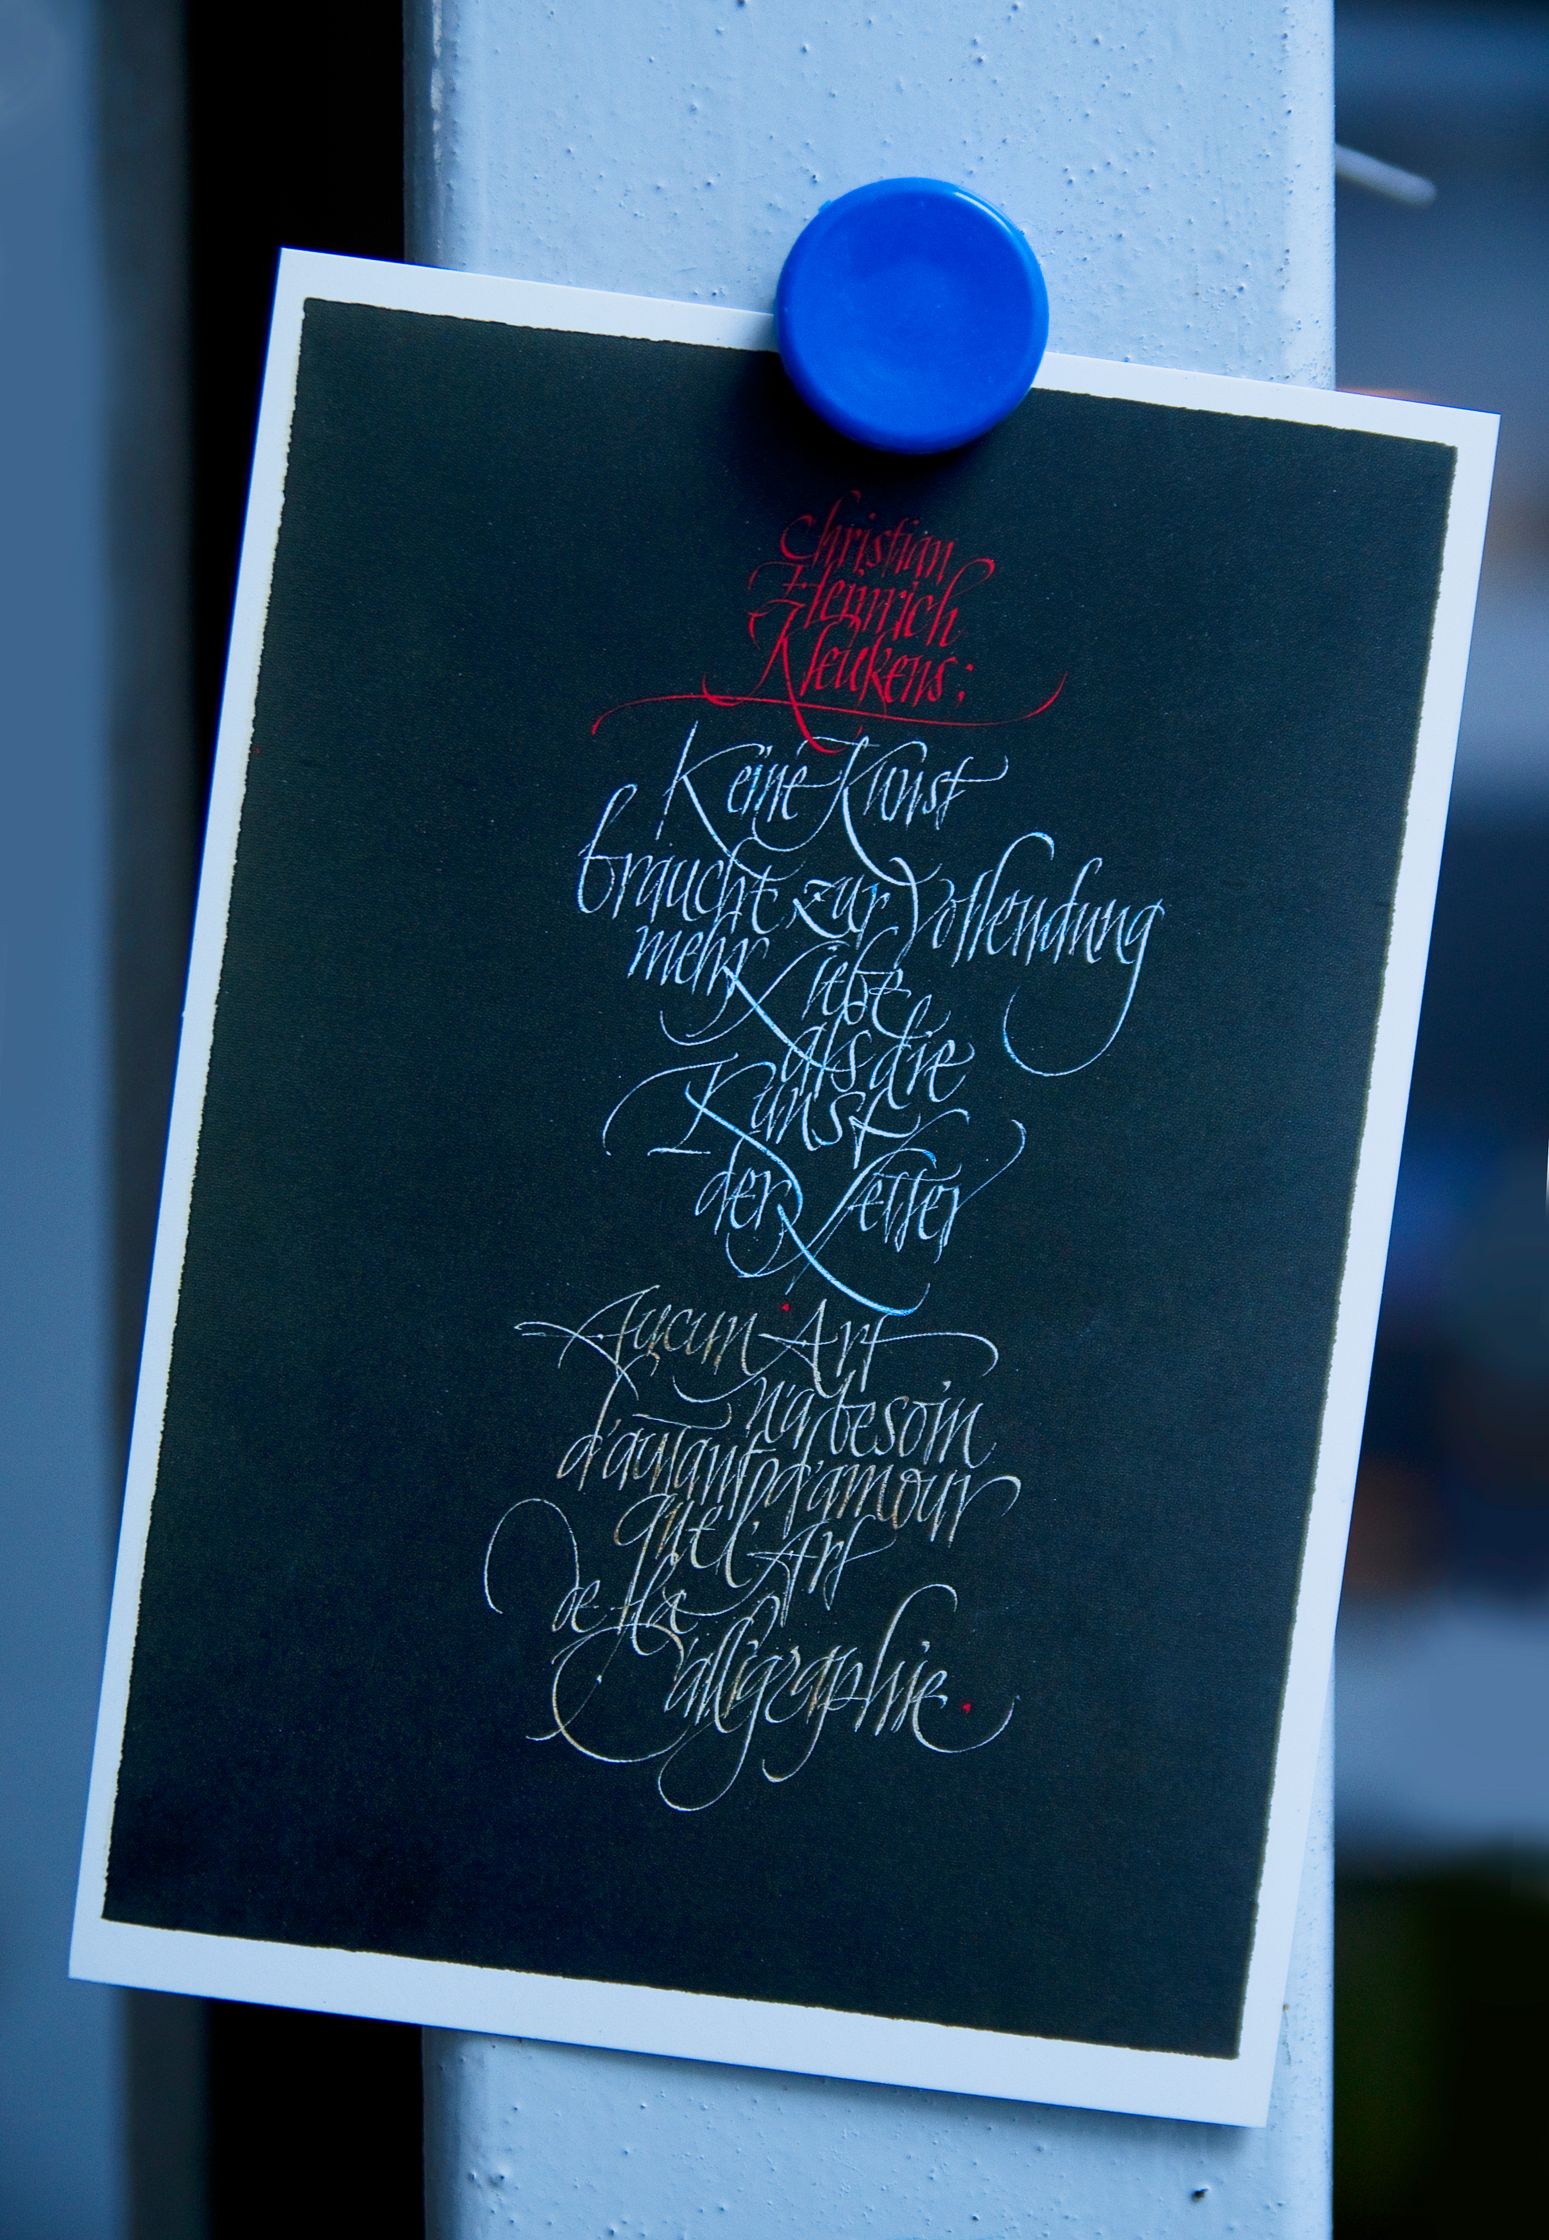 Christian
Heinrich
Kleukens:
Keine Kunst
braucht zur Vollendung
mehr Liebe
als die
Kunst
der Letter
Aucun Art
n'a besoin
d'autant d'amour
que l'Art
de la
Calligraphie.